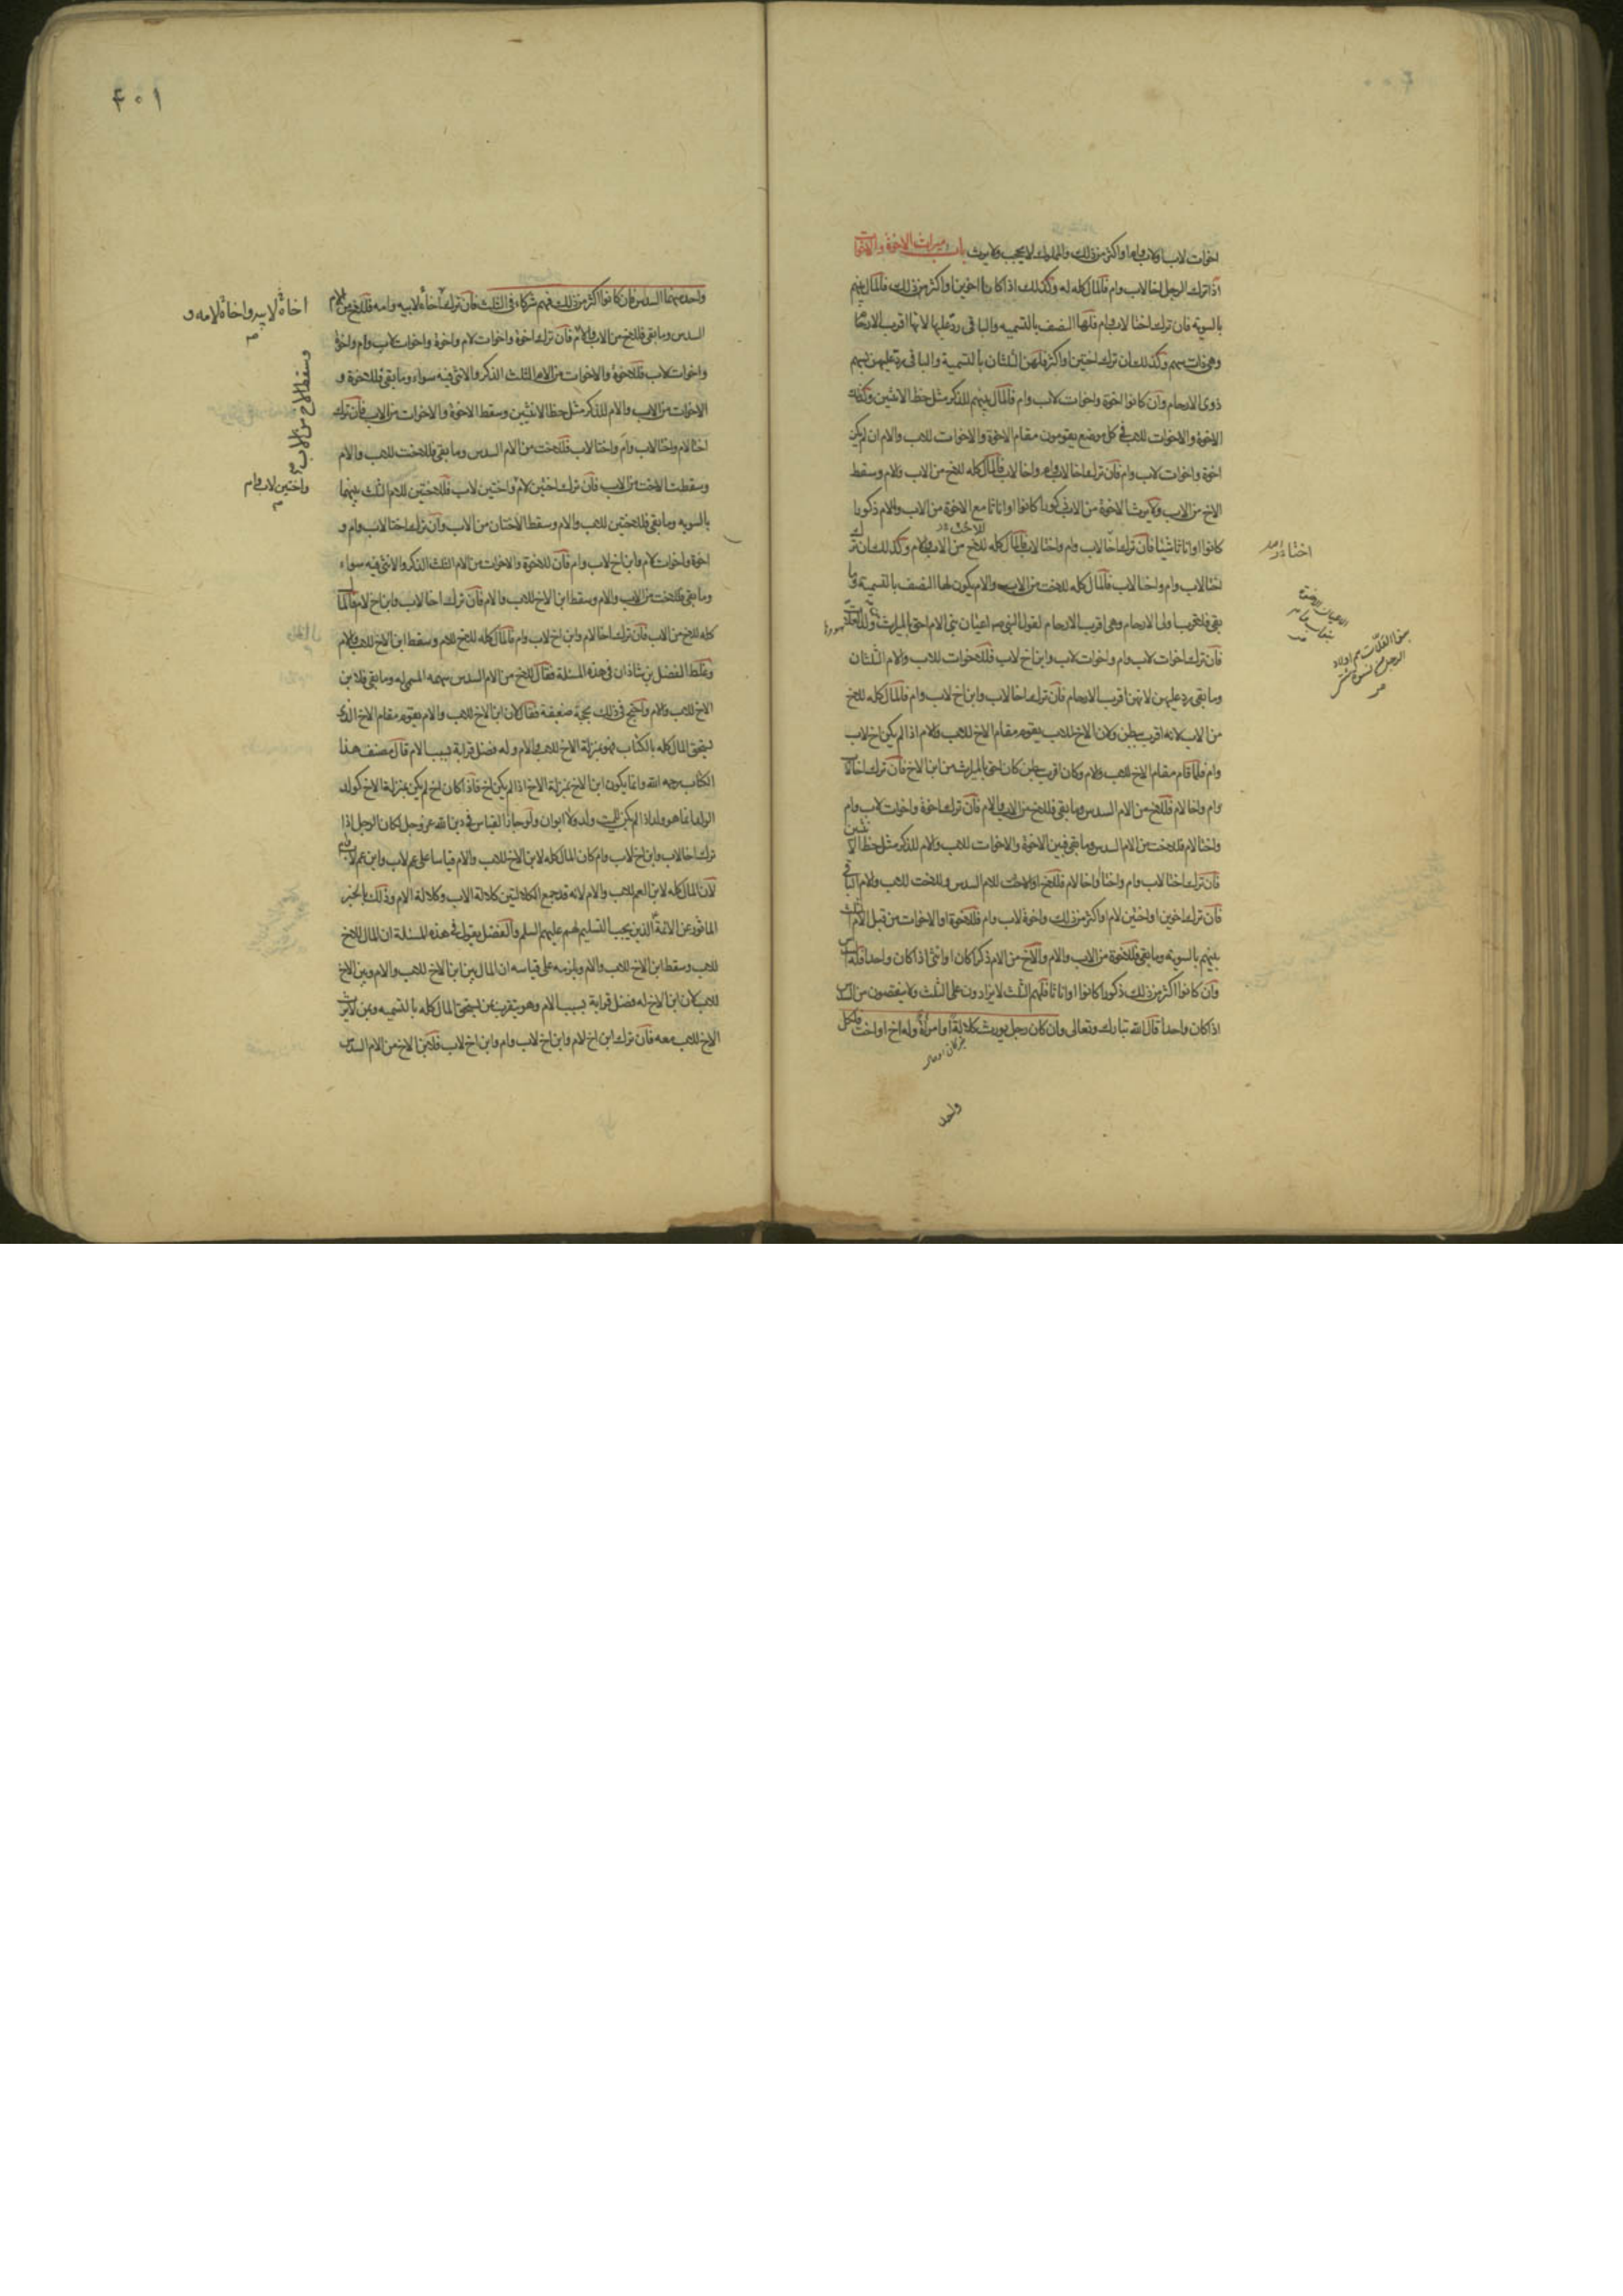 اخوات لاب او لاب وام او اكثر من ذلك والمملوك لا يحجب ولا يرث باب ميراث الاخوة والاخوات
اذا ترك الرجل اخا لاب وام فالمال كله له وكذلك اذا كانا اخوين او اكثر من ذلك فالمال بينهم
بالسوية فان ترك اختا لاب وام فلها النصف بالتسمية والباقى رد عليها لانها اقرب الارحام
وهى ذات سهم وكذلك ان ترك اختين او اكثر فلهن الثلثان بالتسمية والباقى يرد عليهن بسهم
ذوى الارحام وان كانوا اخوة واخوات لاب وام فالمال بينهم للذكر مثل حظ الانثيين وكذلك
الاخوة والاخوات للاب فى كل موضع يقومون مقام الاخوة والاخوات للاب والام ان لم يكن
اخوة واخوات لاب وام فان ترك اخا لاب وام واخا لاب فالمال كله للاخ من الاب والام وسقط
الاخ من الاب ولا يرث الاخوة من الاب ذكورا كانوا او اناثا مع الاخوة من الاب والام ذكورا
كانوا او اناثا شيئا فان ترك اخا لاب وام واختا لاب فالمال كله للاخ من الاب والام وكذلك ان ترك
اختا لاب وام واخا لاب فالمال كله للاخت من الاب والام يكون لها النصف بالتسمية وما
بقى فلاقرب اولى الارحام وهى اقرب الارحام لقول النبى ص اعيان بنى الام احق بالميراث من ولد العلات
فان ترك اخوات لاب وام واخوات لاب وابن اخ لاب فللاخوات للاب والام الثلثان
وما بقى رد عليهن لانهن اقرب الارحام فان ترك اخا لاب وابن اخ لاب وام فالمال كله للاخ
من الاب لانه اقرب ببطن ولان الاخ للاب يقوم مقام الاخ للاب والام اذا لم يكن اخ لاب
وام فلما قام مقام الاخ للاب والام وكان اقرب ببطن كان احق بالميراث من ابن الاخ فان ترك اخا لاب
وام واخا لام فللاخ من الام السدس وما بقى فللاخ من الاب والام فان ترك اخوة واخوات لاب وام
واختا لام فللاخت من الام السدس وما بقى فبين الاخوة والاخوات للاب والام للذكر مثل حظ الانثيين
فان ترك اختا لاب وام واختا او اخا لام فللاخ او الاخت للام السدس وللاخت للاب والام الباقى
فان ترك اخوين او اختين لام او اكثر من ذلك واخوة لاب وام فللاخوة او الاخوات من قبل الام الثلث
بينهم بالسوية وما بقى فللاخوة من الاب والام والاخ من الام ذكرا كان او انثى اذا كان واحدا فله السدس
وان كانوا اكثر من ذلك ذكورا كانوا او اناثا فلهم الثلث لا يزادون على الثلث ولا ينقصون من السدس
اذا كان واحدا قال الله تبارك وتعالى وان كان رجل يورث كلالة او امرأة وله اخ او اخت فلكل
واحد
للاخت
بنو العلات هم اولاد
الرجل من نسوة شتى
واحد منهما السدس فان كانوا اكثر من ذلك فهم شركاء فى الثلث فان ترك اخاه لابيه وامه فللاخ من الام
السدس وما بقى فللاخ من الاب والام فان ترك اخوة واخوات لام واخوة واخوات لاب وام واخوة
واخوات لاب فللاخوة والاخوات من الام الثلث الذكر والانثى فيه سواء وما بقى فللاخوة و
الاخوات من الاب والام للذكر مثل حظ الانثيين وسقط الاخوة والاخوات من الاب فان ترك
اختا لام واختا لاب وام واختا لاب فللاخت من الام السدس وما بقى فللاخت للاب والام
وسقطت الاخت من الاب فان ترك اختين لام واختين لاب فللاختين للام الثلث بينهما
بالسوية وما بقى فللاختين للاب والام وسقط الاختان من الاب وان ترك اختا لاب وام و
اخوة واخوات لام وابن اخ لاب وام فان للاخوة والاخوات من الام الثلث الذكر والانثى فيه سواء
وما بقى فللاخت من الاب والام وسقط ابن الاخ للاب والام فان ترك اخا لاب وابن اخ لام فالمال
كله للاخ من الاب فان ترك اخا لام وابن اخ لاب وام فالمال كله للاخ للام وسقط ابن الاخ للاب والام
وغلط الفضل بن شاذان فى هذه المسئلة فقال للاخ من الام السدس سهمه المسمى له وما بقى فلابن
الاخ للاب والام واحتج فى ذلك بحجة ضعيفة فقال لان ابن الاخ للاب والام يقوم مقام الاخ الذى
يستحق المال كله بالكتاب فهو بمنزلة الاخ للاب والام وله فضل قرابة بسبب الام قال مصنف هذا
الكتاب رحمه الله وانما يكون ابن الاخ بمنزلة الاخ اذا لم يكن اخ فاذا كان اخ لم يكن بمنزلة الاخ كولد
الولد انما هو ولد اذا لم يكن للميت ولد ولا ابوان ولو جاز القياس فى دين الله عز وجل لكان الرجل اذا
ترك اخا لاب وابن اخ لاب وام كان المال كله لابن الاخ للاب والام قياسا على عم لاب وابن عم لاب وام
لان المال كله لابن العم للاب والام لانه قد جمع الكلالتين كلالة الاب وكلالة الام وذلك بالخبر
الماثور عن الائمة الذين يجب التسليم لهم عليهم السلم والفضل يقول فى هذه المسئلة ان المال للاخ
للاب وسقط ابن الاخ للاب والام ويلزمه على قياسه ان المال بين ابن الاخ للاب والام وبين الاخ
للاب لان ابن الاخ له فضل قرابة بسبب الام وهو يتقرب بمن يستحق المال كله بالتسمية وبمن لا يرث
الاخ للاب معه فان ترك ابن اخ لام وابن اخ لاب وام وابن اخ لاب فلابن الاخ من الام السدس
اخاه لابيه واخاه لامه و
وسقط الاخ من الاب
واختين لاب وام
۴۰۱